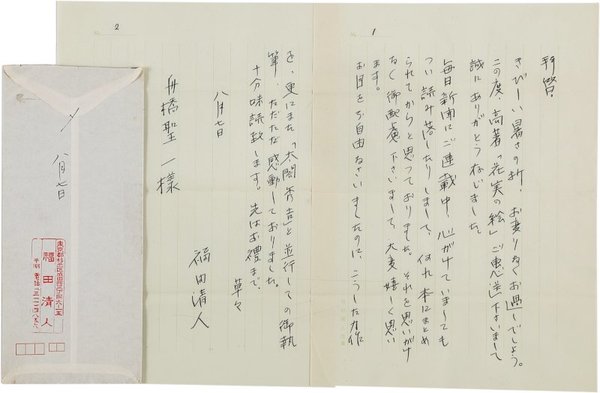 1
拝啓
きびしい暑さの折、お変りなくお過しでしょう。
この度、高著「花実の絵」ご恵送下さいまして
誠にありがとう存じました
毎日新聞にご連載中、心がけていましても
つい読み落したりしまして、何れ本にまとめ
られてからと思っておりました。それを思いがけ
なく御恵 下さいまして、大変嬉しく思い
ます。
お目をご自由なさいましたのに、こうした力作
2
を、更にまた「太閤秀吉」と並行しての御執
筆、ただただ感動しておりました。
十分味読致します。先はお禮まで。
草々
八月七日
福田清人
舟橋聖一様
〆
八月七日
福田清人